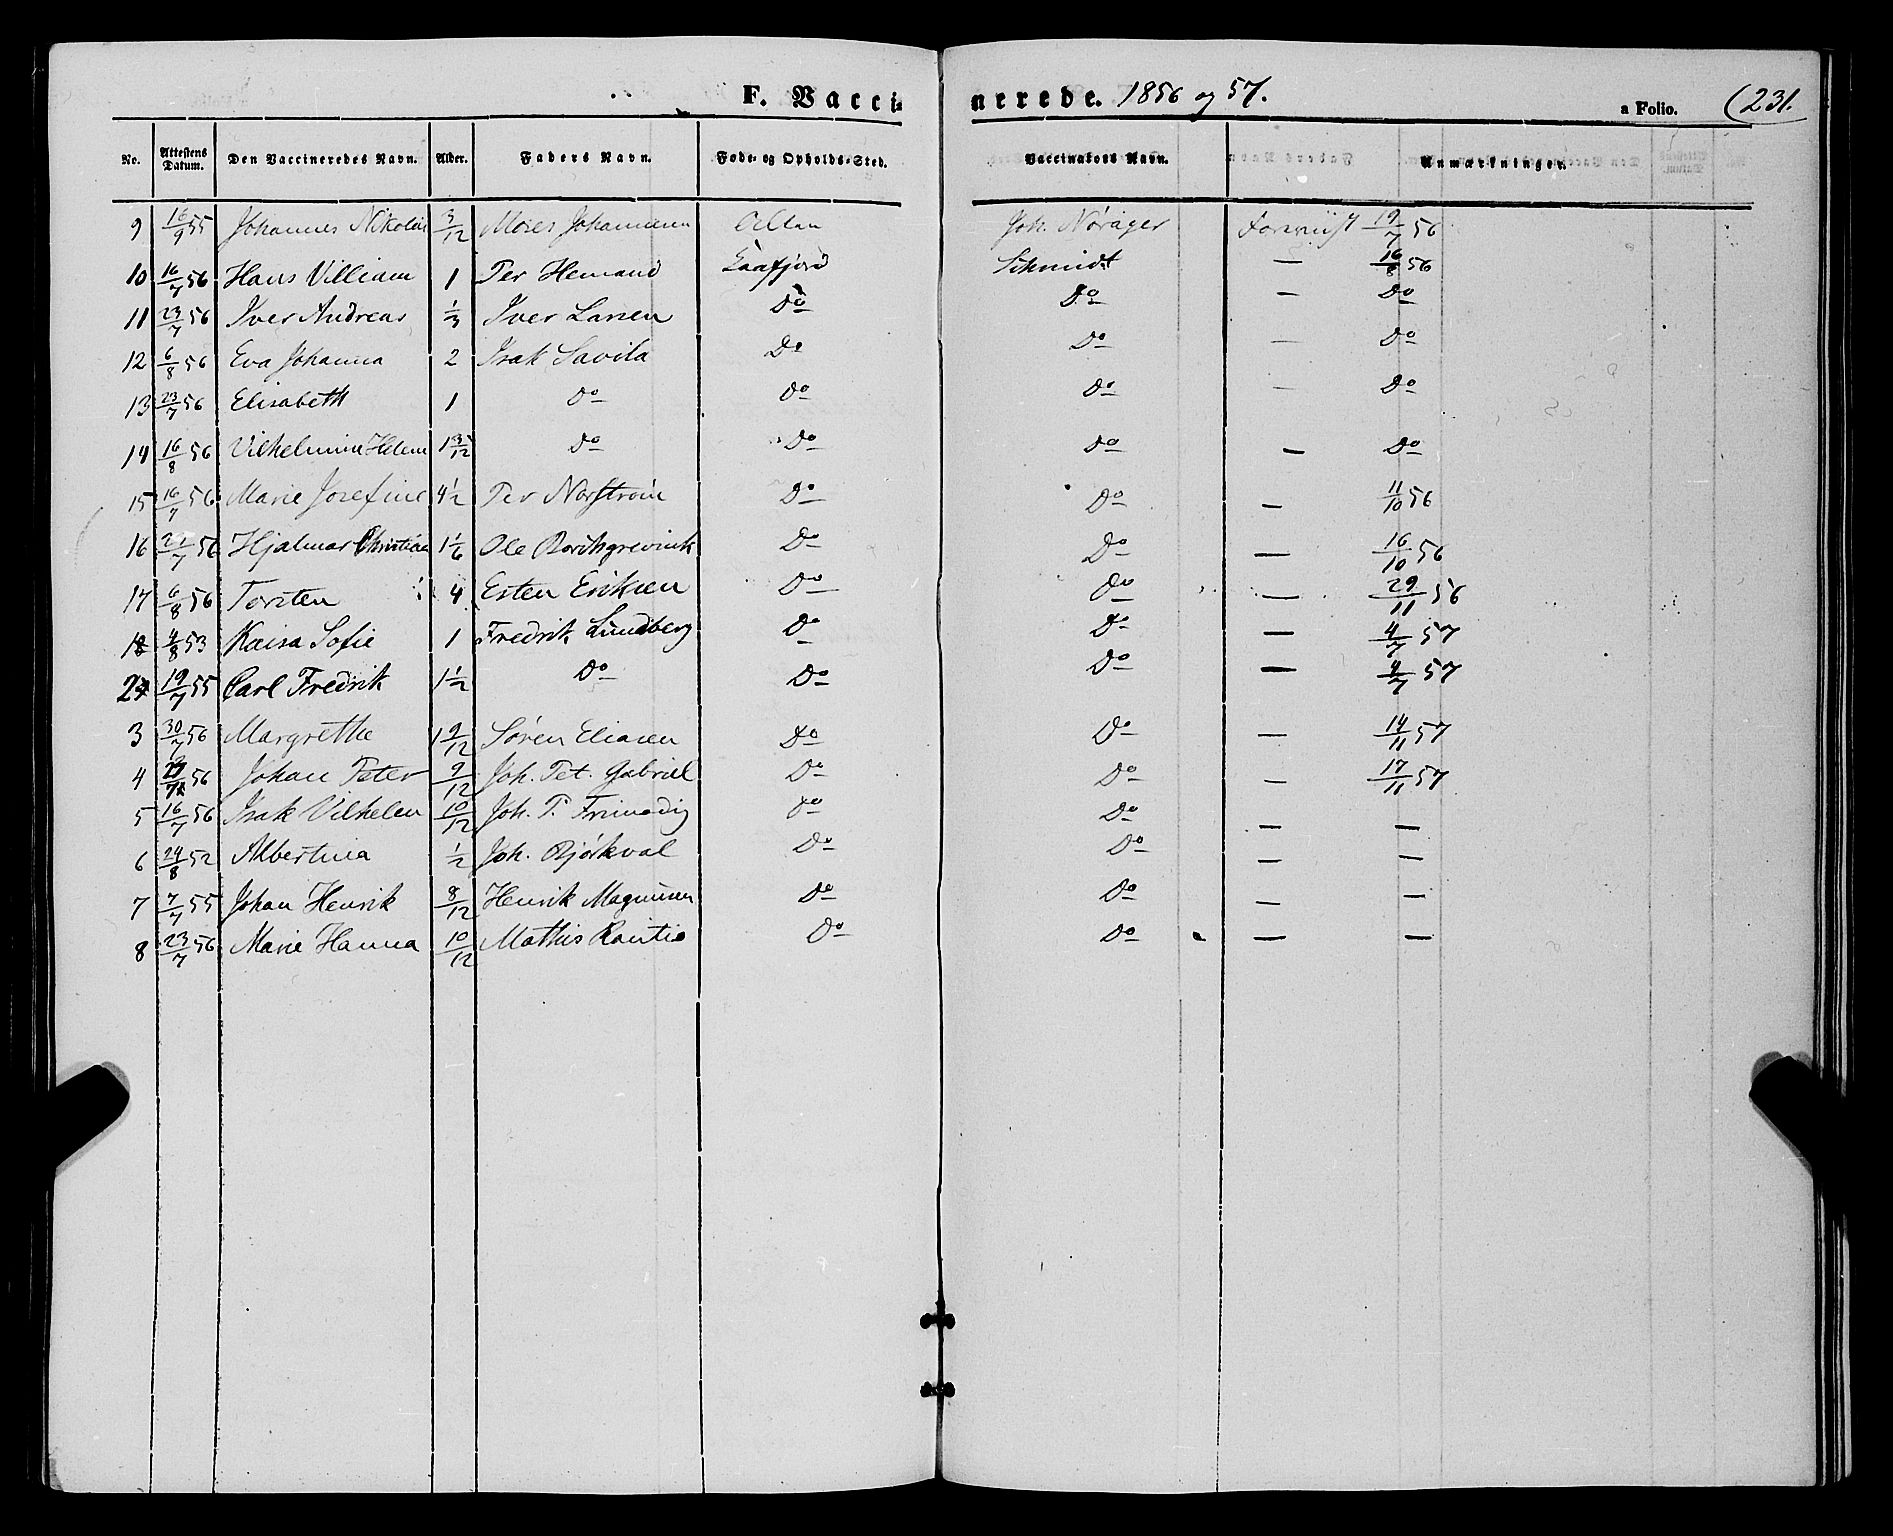 F. Vaccinerede. 1856 og 57. a Folio. (231.
No. Attestens Datum. Den Vaccineredes Navn. Alder. Faders Navn. Føde- og Opholds-Sted. Vaccinatørs Navn. Anmærkninger.
9 16/9 55 Johannes Nikolai 3/12 Moses Johannesen Alten Joh. Norager Forevist 19/7 56
10 16/7 56 Hans Villiam 1 Per Hemand Kaafjord Schmidt — 16/8 56
11 23/7 56 Iver Andreas 1/3 Iver Larsen Do Do — Do
12 6/8 56 Eva Johanna 2 Isak Savila Do Do — Do
13 23/7 56 Elisabeth 1 Do Do Do — Do
14 16/8 56 Vilhelmine Helene 1 3/12 Do Do Do — Do
15 16/7 56 Marie Josefine 4 1/2 Per Norstrøm Do Do — 11/10 56
16 /7 56 Hjalmar Christian 1 1/6 Ole Borchgrevink Do Do — 16/10 56
17 6/8 56 Torsten 4 Esten Eriksen Do Do — 29/11 56
1 4/8 53 Kaisa Sofie 1 Fredrik Lundberg Do Do — 4/7 57
2 19/7 55 Carl Fredrik 1 1/2 Do Do Do — 4/7 57
3 30/7 56 Margrethe 1 9/12 Søren Eliasen Do Do — 14/11 57
4 56 Johan Peter 9/12 Joh. Pet. Gabriel Do Do — 17/11 57
5 16/7 56 Isak Vilhelm 10/12 Joh. P. Do Do — —
6 24/8 52 Albertina 1/2 Joh. Bjørkval Do Do — —
7 7/7 55 Johan Henrik 8/12 Henrik Magnusen Do Do — —
8 23/7 56 Marie Hanna 10/12 Mathis Rautio Do Do — —